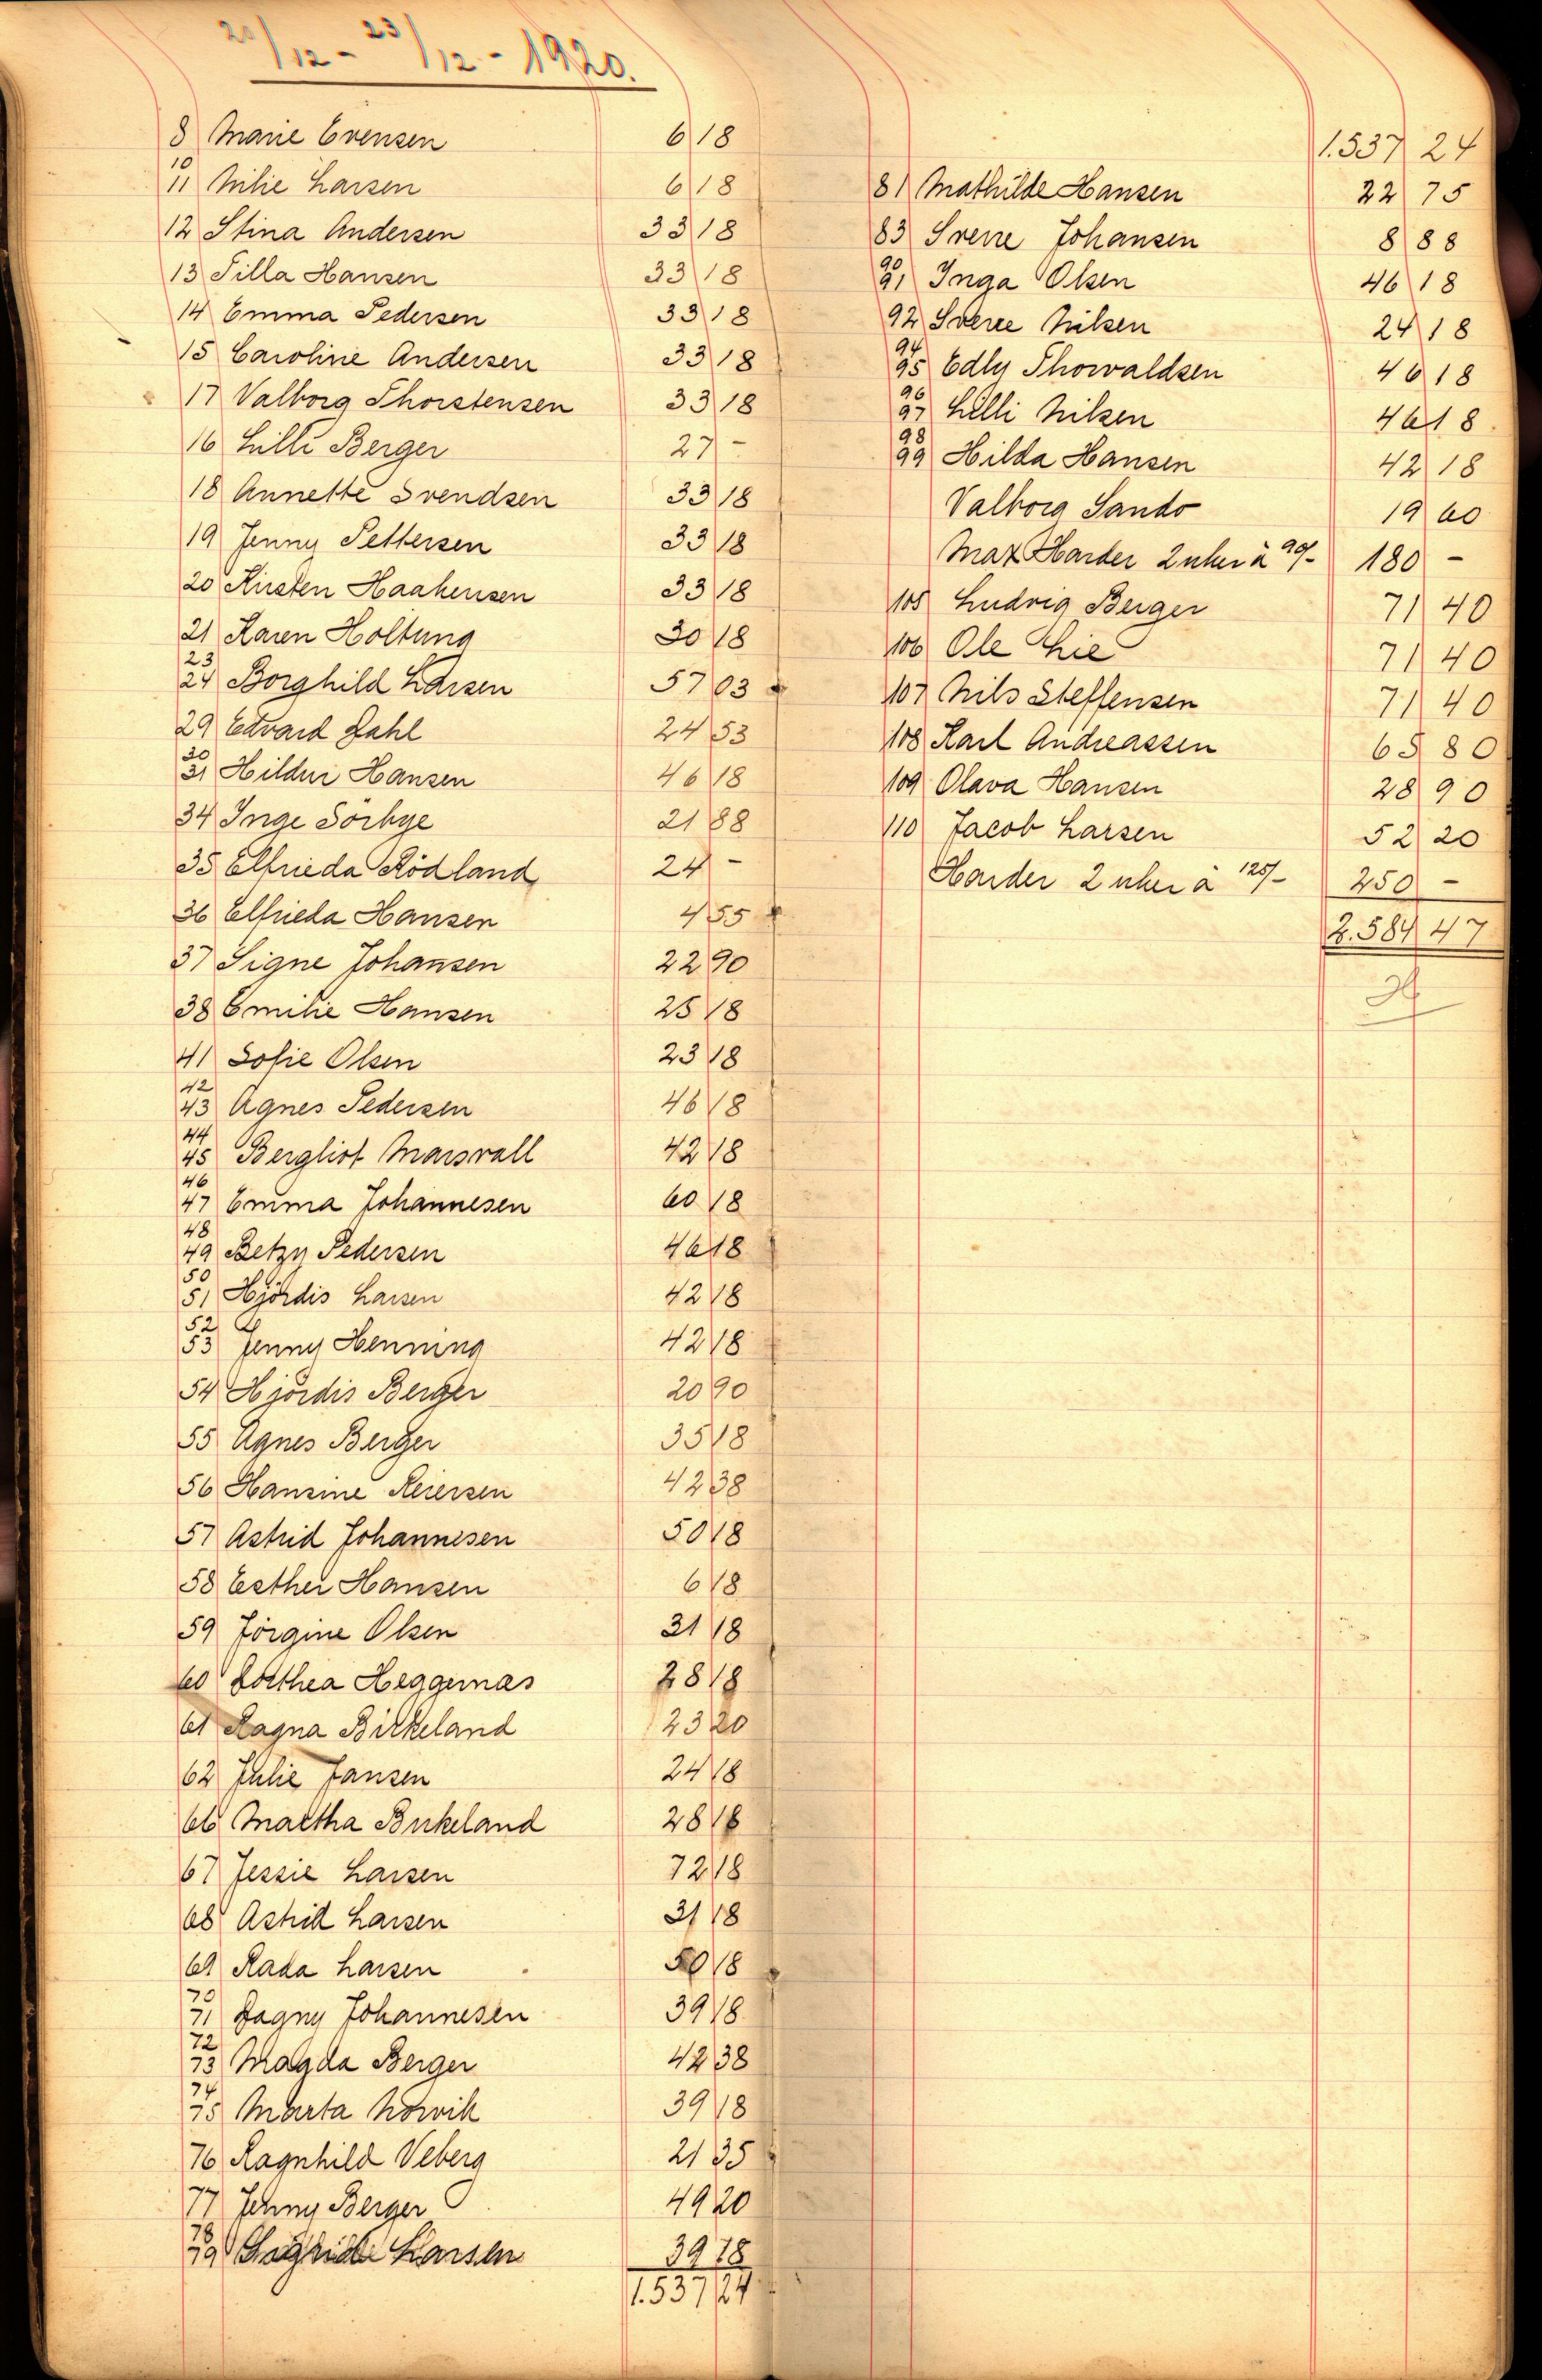 20/12 - 23/12 - 1920.
8 Marie Evensen 6 18
10
11 Milie Larsen 6 18
12 Stina Andersen 33 18
13 Tilla Hansen 33 18
14 Emma Pedersen 33 18
15 Caroline Andersen 33 18
17 Valborg Thorstensen 33 18
16 Lilli Berger 27 -
18 Annette Svendsen 33 18
19 Jenny Pettersen 33 18
20 Kirsten Haakensen 33 18
21 Karen Holtung 30 18
23
24 Borghild Larsen 57 03
29 Edvard Dahl 24 53
30
31 Hildur Hansen 46 18
34 Inge Sörbye 21 88
35 Elfrieda Rödland 24 -
36 Elfrieda Hansen 4 55
37 Signe Johansen 22 90
38 Emilie Hansen 25 18
41 Sofie Olsen 23 18
42
43 Agnes Pedersen 46 18
44
45 Bergliot Marsvall 42 18
46
47 Emma Johannesen 60 18
48
49 Betzy Pedersen 46 18
50
51 Hjördis Larsen 42 18
52
53 Jenny Henning 42 18
54 Hjördis Berger 20 90
55 Agnes Berger 35 18
56 Hansine Reiersen 42 38
57 Astrid Johannesen 50 18
58 Esther Hansen 6 18
59 Jörgine Olsen 31 18
60 Dorthea Heggernæs 28 18
61 Ragna Birkeland 23 20
62 Julie Jansen 24 18
66 Martha Birkeland 28 18
67 Jessie Larsen 72 18
68 Astrid Larsen 31 18
69 Rada Larsen 50 18
70
71 Dagny Johannesen 39 18
72
73 Magda Berger 42 38
74
75 Marta Norvik 39 18
76 Ragnhild Veberg 21 35
77 Jenny Berger 49 20
78
79 Larsen 39 18
1.537 24
1.537 24
81 Mathilde Hansen 22 75
83 Sverre Johansen 8 88
90
91 Inga Olsen 46 18
92 Sverre Nilsen 24 18
94
95 Edly Thorvaldsen 46 18
96
97 Lilli Nilsen 46 18
98
99 Hilda Hansen 42 18
Valborg Sando 19 60
Max Harder 2 uker à 90/- 180 -
105 Ludvig Berger 71 40
106 Ole Lie 71 40
107 Nils Steffensen 71 40
108 Karl Andreassen 65 80
109 Olava Hansen 28 90
110 Jacob Larsen 52 20
Harder 2 uker à 125/- 250 -
2.584 47